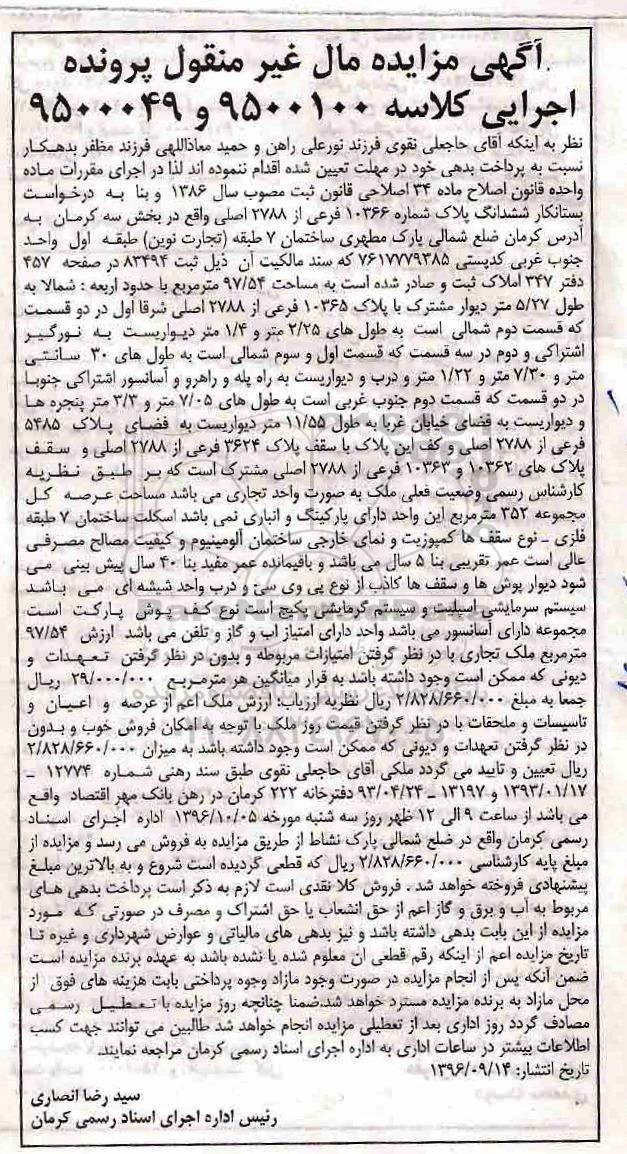 آگهی مزایده مال غیر منقول پرونده
اجرایی کلاسه ۹۵۰۰۱۰۰ و ۹۵۰۰۰۴۹
نظر به اینکه آقای حاجعلی نقوی فرزند نورعلی راهن و حمید معاذاللهی فرزند مظفر بدهکار
نسبت به پرداخت بدهی خود در مهلت تعیین شده اقدام ننموده اند لذا در اجرای مقررات ماده
واحده قانون اصلاح ماده ۳۴ اصلاحی قانون ثبت مصوب سال ۱۳۸۶ و بنا به درخواست
بستانکار ششدانگ پلاک شماره ۱۰۳۶۶ فرعی از ۲۷۸۸ اصلی واقع در بخش سه کرمان به
آدرس کرمان ضلع شمالی پارک مطهری ساختمان ۷ طبقه (تجارت نوین) طبقه اول واحد
جنوب غربی کدپستی ۷۶۱۷۷۷۹۳۸۵ که سند مالکیت آن ذیل ثبت ۸۳۴۹۴ در صفحه ۴۵۷
دفتر ۳۴۷ املاک ثبت و صادر شده است به مساحت ۹۷/۵۴ مترمربع با حدود اربعه : شمالا به
طول ۵/۲۷ متر دیوار مشترک با پلاک ۱۰۳۶۵ فرعی از ۲۷۸۸ اصلی شرقا اول در دو قسمت
که قسمت دوم شمالی است به طول های ۲/۲۵ متر و ۱/۴ متر دیواریست به نورگیر
اشتراکی و دوم در سه قسمت که قسمت اول و سوم شمالی است به طول های ۳۰ سانتی
متر و ۷/۳۰ متر و ۱/۲۲ متر و درب و دیواریست به راه پله و راهرو و آسانسور اشتراکی جنوبا
در دو قسمت که قسمت دوم جنوب غربی است به طول های ۷/۰۵ متر و ۳/۳ متر پنجره ها
و دیواریست به فضای خیابان غربا به طول ۱۱/۵۵ متر دیواریست به فضای پلاک ۵۴۸۵
فرعی از ۲۷۸۸ اصلی و کف این پلاک با سقف پلاک ۳۶۲۴ فرعی از ۲۷۸۸ اصلی و سقف
پلاک های ۱۰۳۶۲ و ۱۰۳۶۳ فرعی از ۲۷۸۸ اصلی مشترک است که بر طبق نظریه
کارشناس رسمی وضعیت فعلی ملک به صورت واحد تجاری می باشد مساحت عرصه کل
مجموعه ۳۵۲ مترمربع این واحد دارای پارکینگ و انباری نمی باشد اسکلت ساختمان ۷ طبقه
فلزی ـ نوع سقف ها کمپوزیت و نمای خارجی ساختمان آلومینیوم و کیفیت مصالح مصرفی
عالی است عمر تقریبی بنا ۵ سال می باشد و باقیمانده عمر مفید بنا ۴۰ سال پیش بینی می
شود دیوار پوش ها و سقف ها کاذب از نوع پی وی سی و درب واحد شیشه ای می باشد
سیستم سرمایشی اسپلیت و سیستم گرمایشی پکیج است نوع کف پوش پارکت است
مجموعه دارای آسانسور می باشد واحد دارای امتیاز آب و گاز و تلفن می باشد ارزش ۹۷/۵۴
مترمربع ملک تجاری با در نظر گرفتن امتیازات مربوطه و بدون در نظر گرفتن تعهدات و
دیونی که ممکن است وجود داشته باشد به قرار میانگین هر مترمربع ۲۹/۰۰۰/۰۰۰ ریال
جمعا به مبلغ ۲/۸۲۸/۶۶۰/۰۰۰ ریال نظریه ارزیاب: ارزش ملک اعم از عرصه و اعیان و
تاسیسات و ملحقات با در نظر گرفتن قیمت روز ملک با توجه به امکان فروش خوب و بدون
در نظر گرفتن تعهدات و دیونی که ممکن است وجود داشته باشد به میزان ۲/۸۲۸/۶۶۰/۰۰۰
ریال تعیین و تایید می گردد ملکی آقای حاجعلی نقوی طبق سند رهنی شماره ۱۲۷۷۴ ـ
۱۳۹۳/۰۱/۱۷ و ۱۳۱۹۷ ـ ۹۳/۰۴/۲۴ دفترخانه ۲۲۲ کرمان در رهن بانک مهر اقتصاد واقع
می باشد از ساعت ۹ الی ۱۲ ظهر روز سه شنبه مورخه ۱۳۹۶/۱۰/۰۵ اداره اجرای اسناد
رسمی کرمان واقع در ضلع شمالی پارک نشاط از طریق مزایده به فروش می رسد و مزایده از
مبلغ پایه کارشناسی ۲/۸۲۸/۶۶۰/۰۰۰ ریال که قطعی گردیده است شروع و به بالاترین مبلغ
پیشنهادی فروخته خواهد شد . فروش کلا نقدی است لازم به ذکر است پرداخت بدهی های
مربوط به آب و برق و گاز اعم از حق انشعاب یا حق اشتراک و مصرف در صورتی که مورد
مزایده از این بابت بدهی داشته باشد و نیز بدهی های مالیاتی و عوارض شهرداری و غیره تا
تاریخ مزایده اعم از اینکه رقم قطعی ان معلوم شده یا نشده باشد به عهده برنده مزایده است
ضمن آنکه پس از انجام مزایده در صورت وجود مازاد وجوه پرداختی بابت هزینه های فوق از
محل مازاد به برنده مزایده مسترد خواهد شد.ضمنا چنانچه روز مزایده با تعطیل رسمی
مصادف گردد روز اداری بعد از تعطیلی مزایده انجام خواهد شد طالبین می توانند جهت کسب
اطلاعات بیشتر در ساعات اداری به اداره اجرای اسناد رسمی کرمان مراجعه نمایند.
تاریخ انتشار: ۱۳۹۶/۰۹/۱۴
سید رضا انصاری
رئیس اداره اجرای اسناد رسمی کرمان